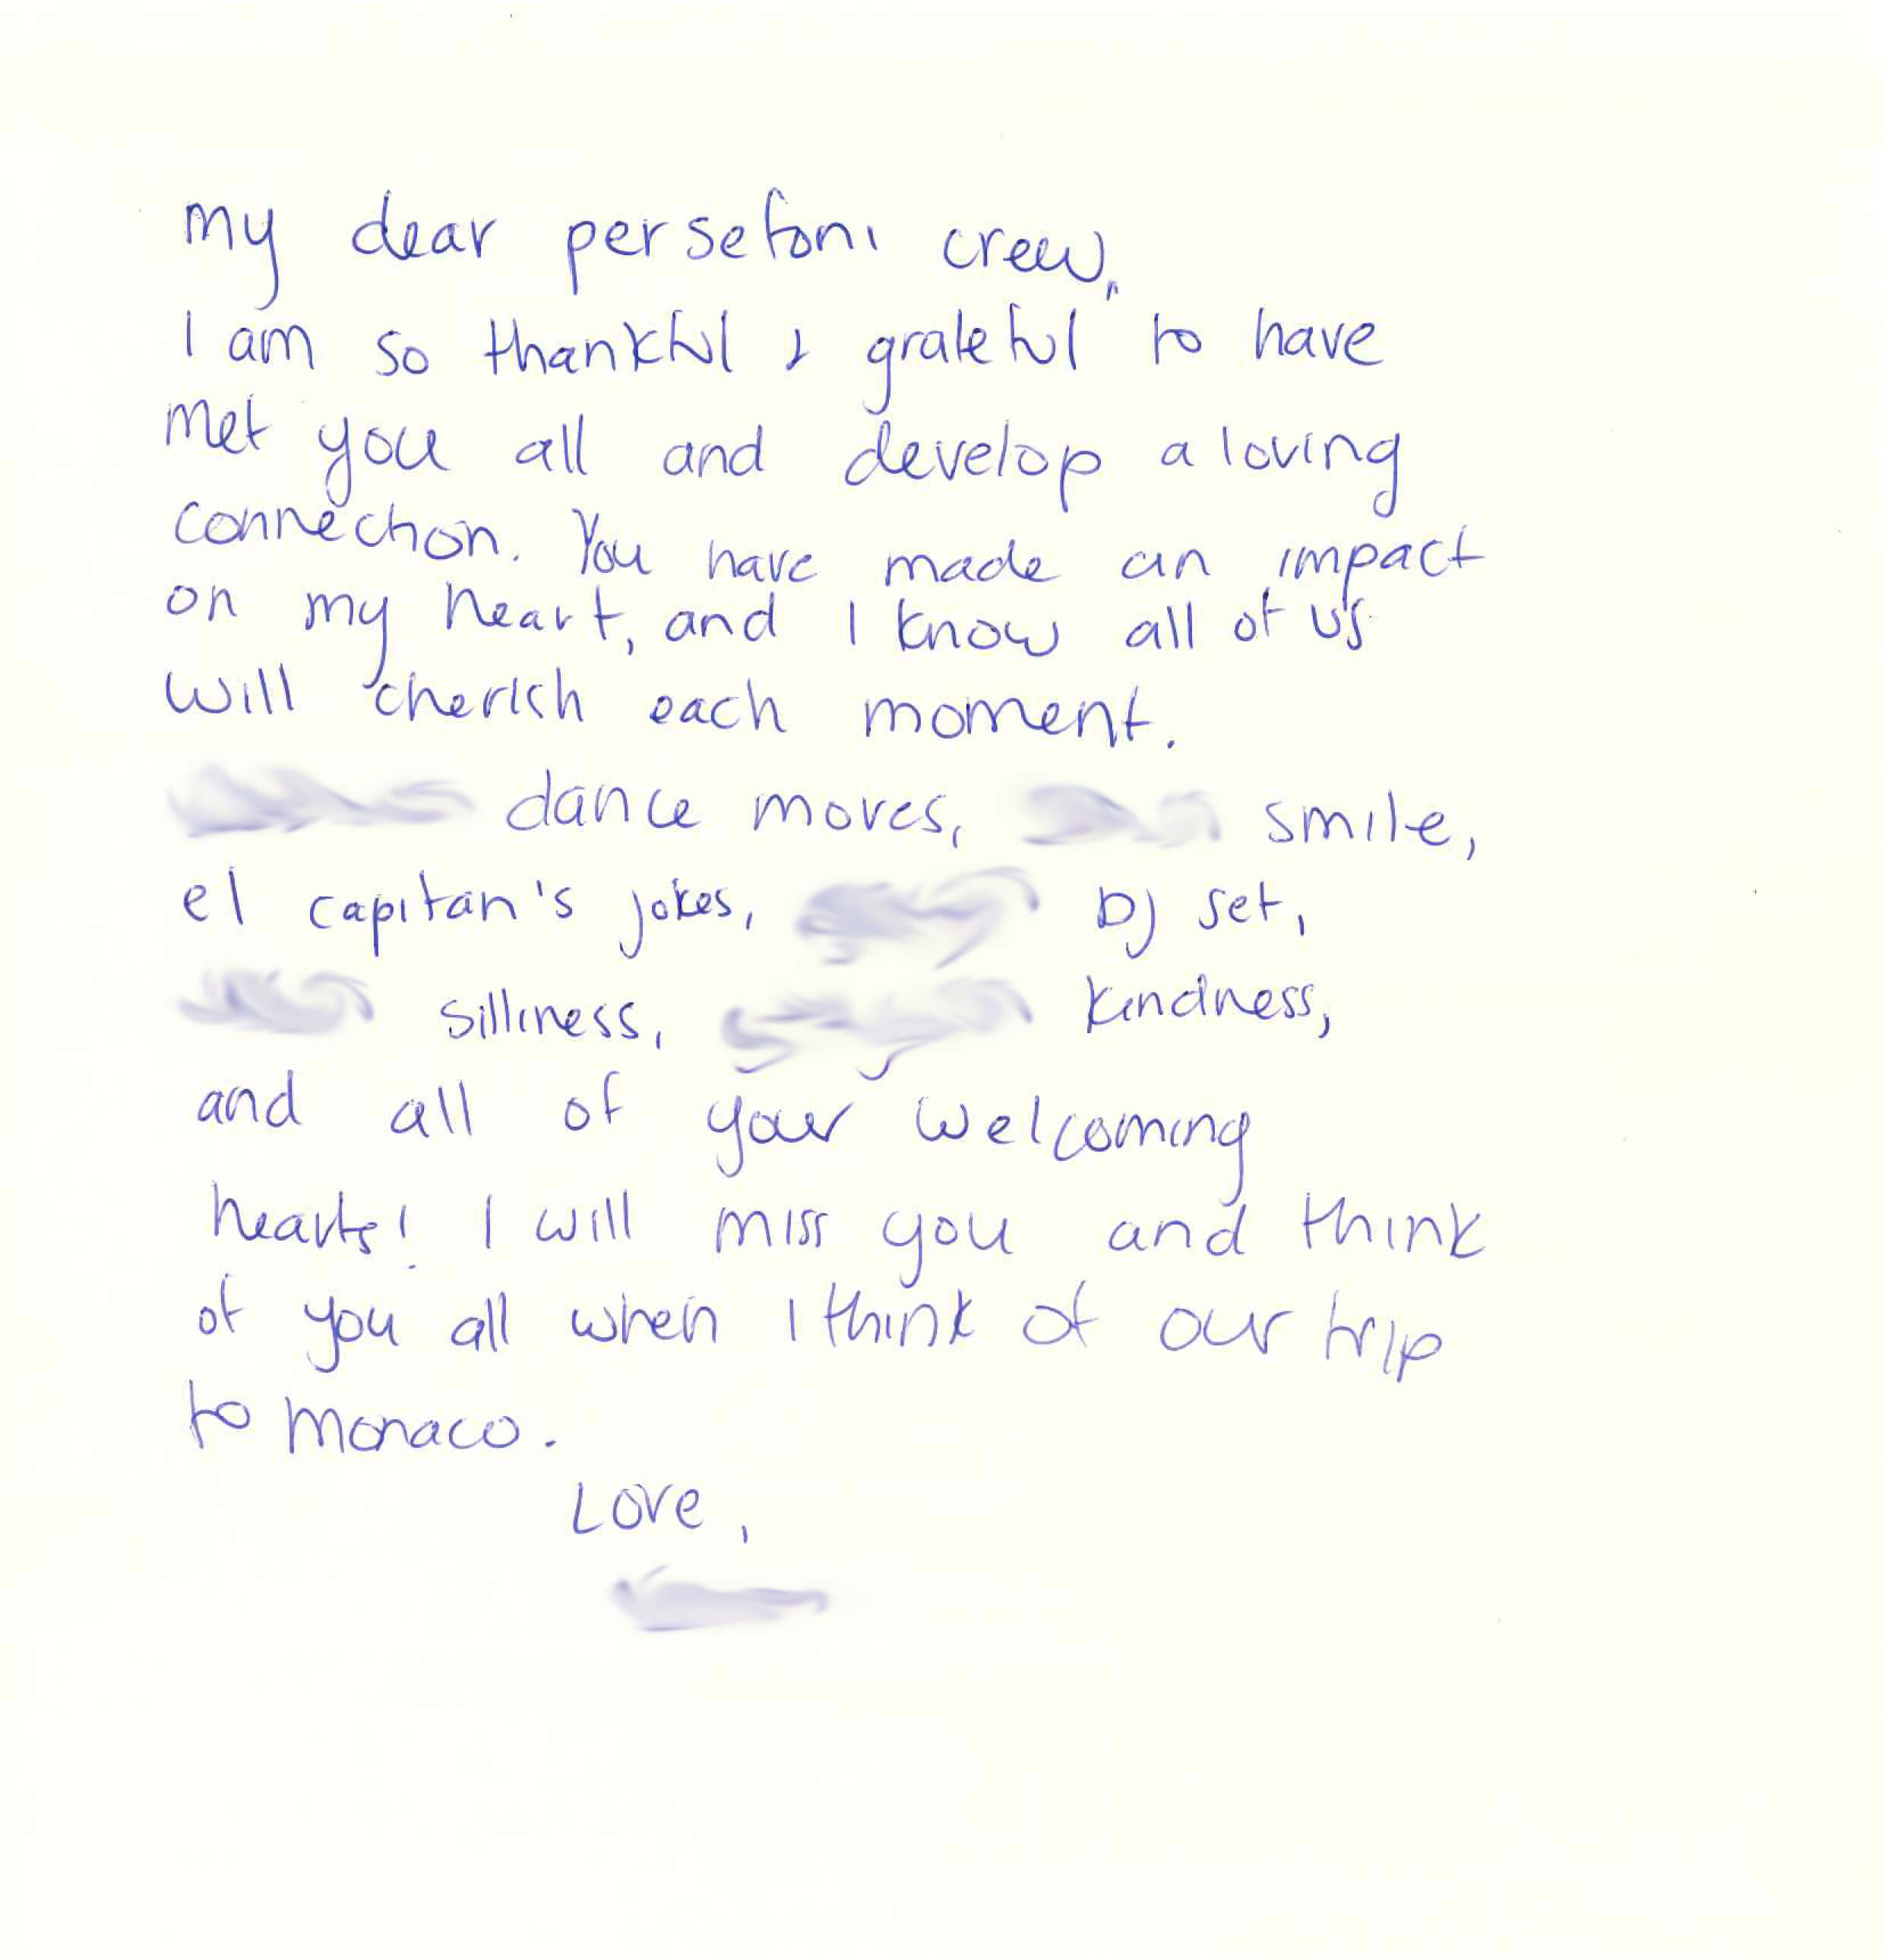 My dear persefoni crew,
I am so thankful & grateful to have
met you all and develop a loving
connection. You have made an impact
on my heart, and I know all of us
will cherish each moment.
dance moves, smile,
el capitan's jokes, DJ set,
silliness, kindness,
and all of your welcoming
hearts! I will miss you and think
of you all when I think of our trip
to Monaco.
Love,